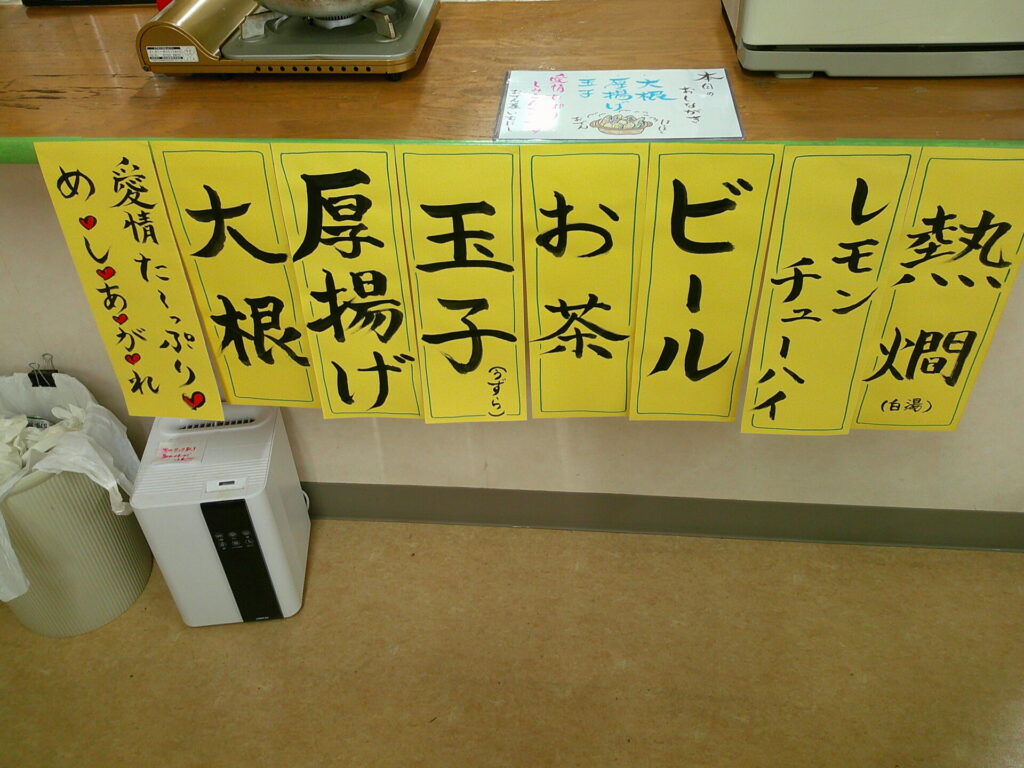 本日の
おしながき
大根
厚揚げ
玉子
おでん
熱燗
(白湯)
レモン
チューハイ
ビール
お茶
玉子
(うずら)
厚揚げ
大根
愛情た〜っぷり
め し あ が れ